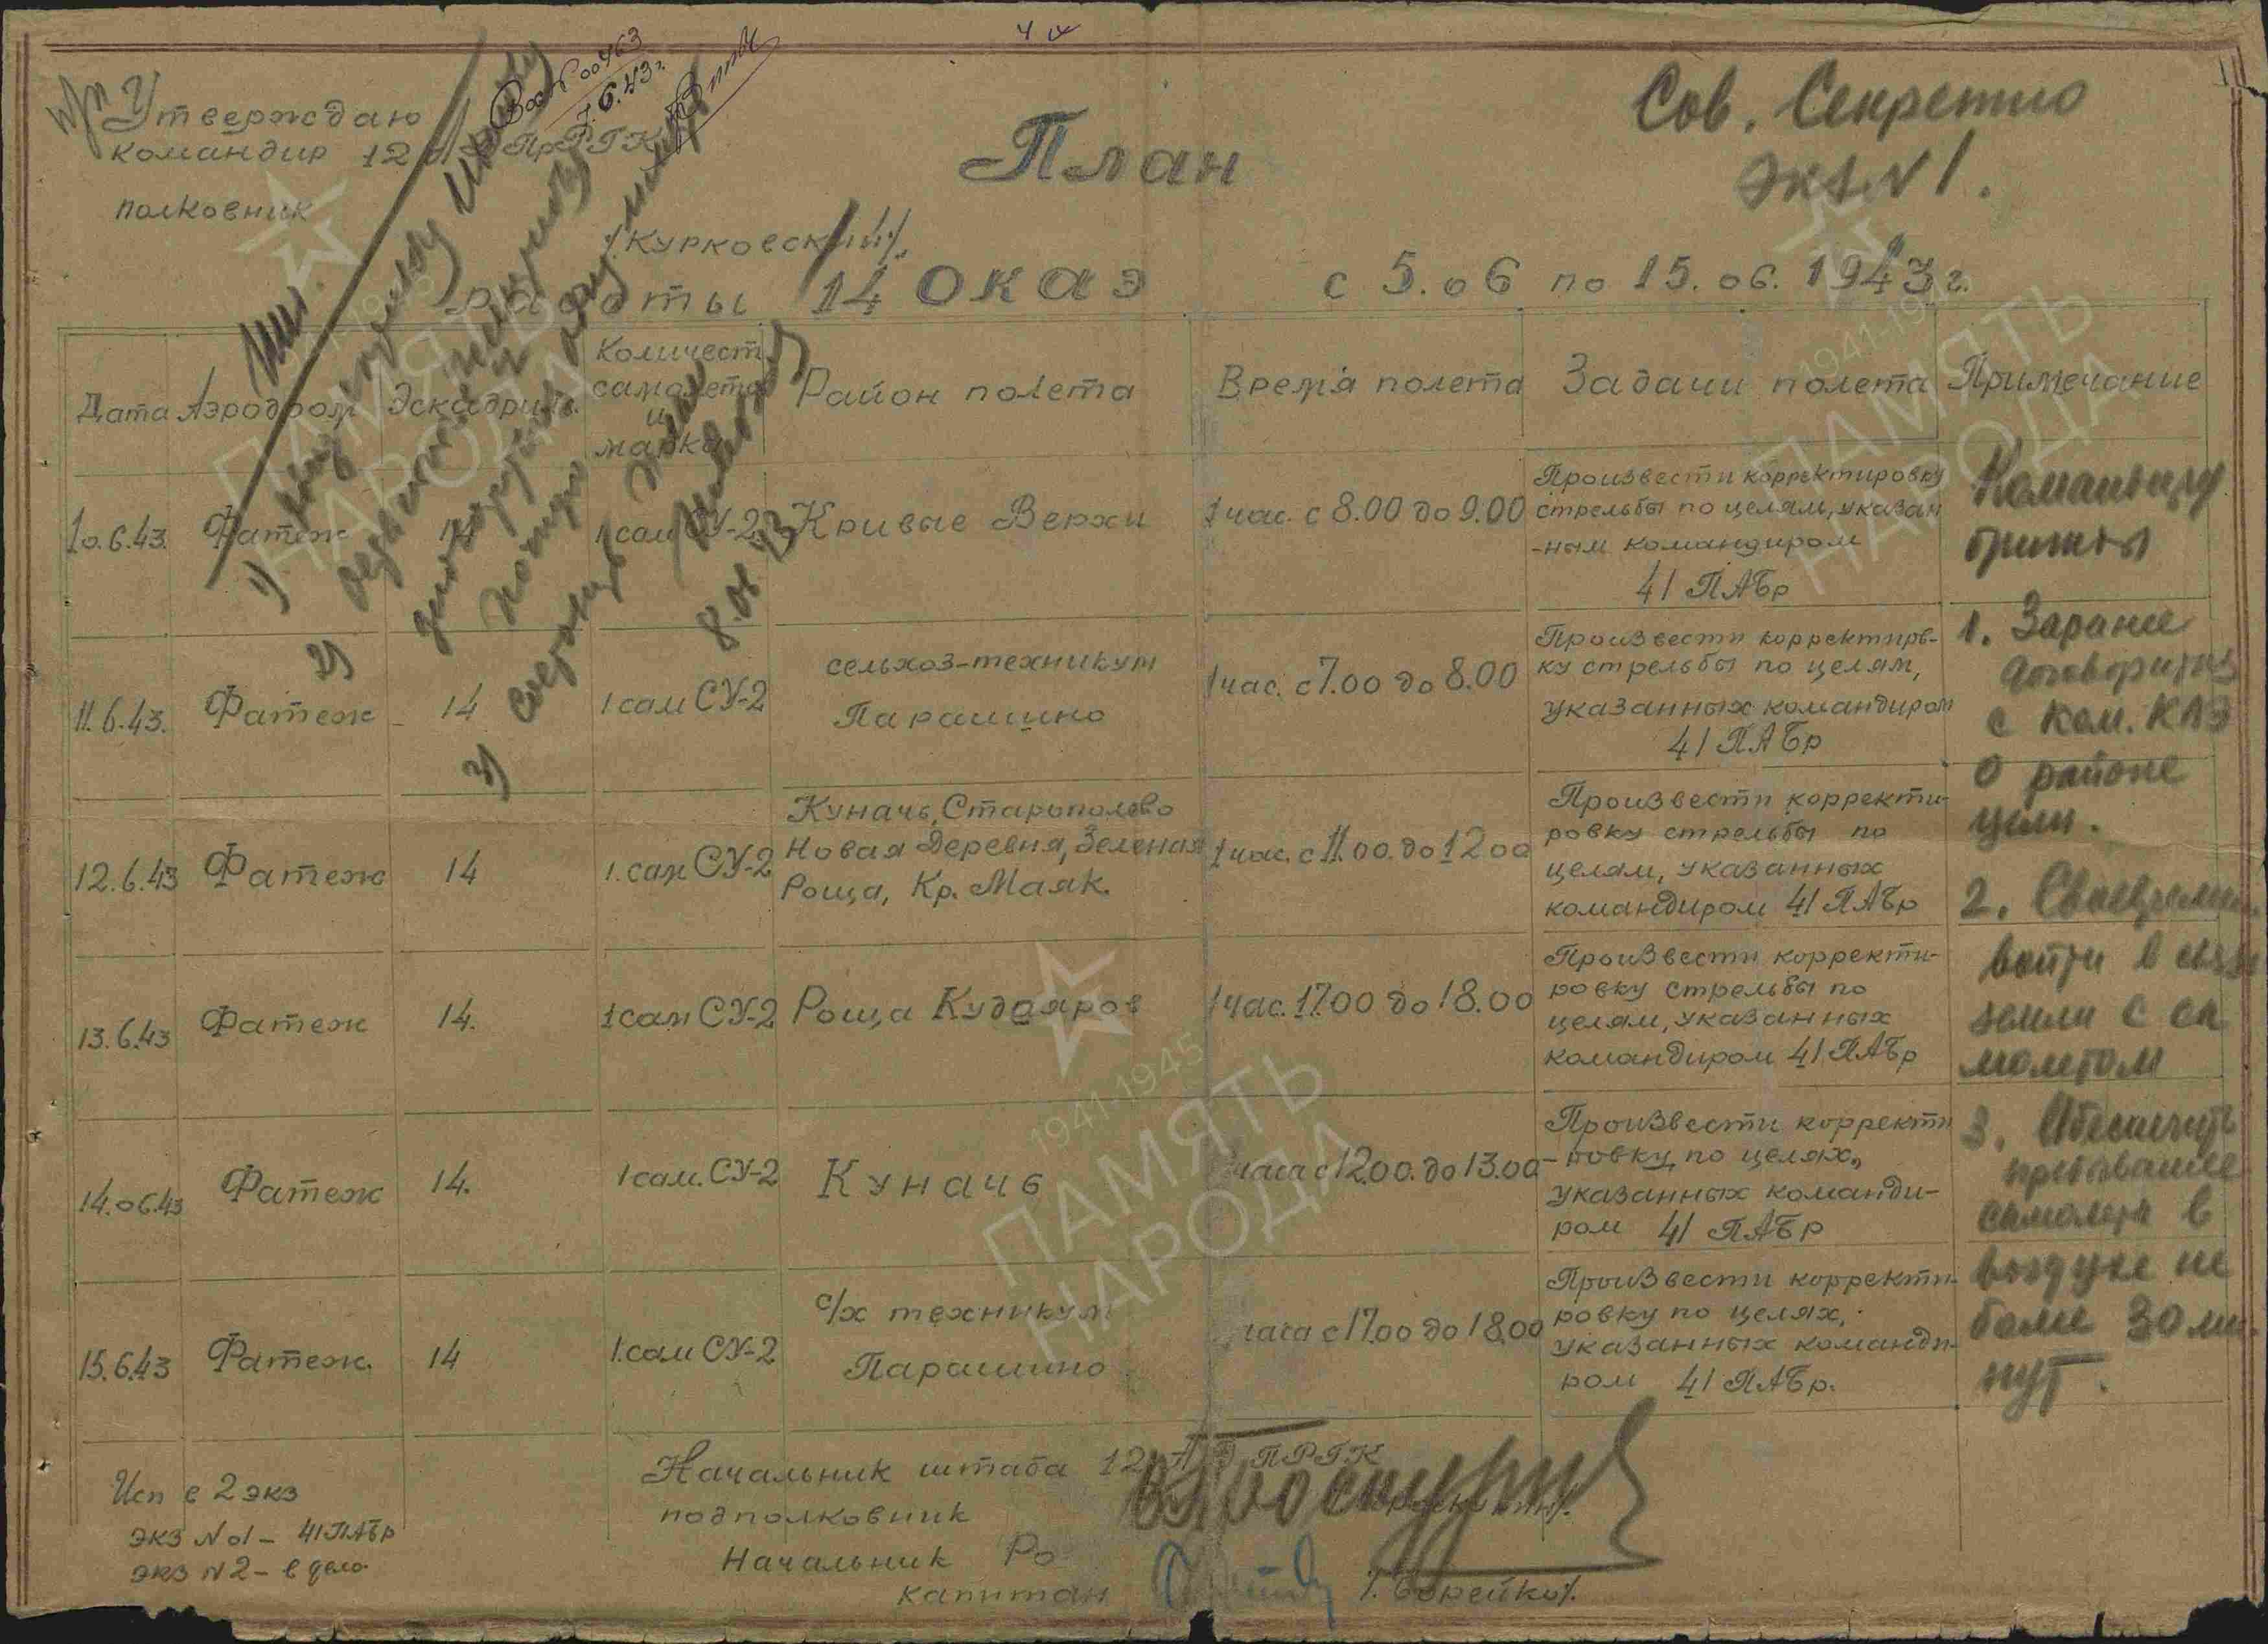 Утверждаю
командир 12 АД ПРГК
полковник
/Курковский/.
Вх № 00463
7.6.43г.
Сов. Секретно
Экз. № 1.
План
работы 14 ОКАЭ с 5.06 по 15.06.1943г.
Дата Аэродром Эскадрил. Количест самолетов и марка Район полета Время полета Задачи полета Примечание
10.6.43. Фатеж 14 1 сам СУ-2 Кривые Верхи 1 час. с 8.00 до 9.00
Произвести корректировку
стрельбы по целям, указан
-ным командиром
41 ПАБр
11.6.43. Фатеж 14 1 сам СУ-2
сельхоз-техникум
Парашино
1 час. с 7.00 до 8.00
Произвести корректиров-
ку стрельбы по целям,
указанных командиром
41 ПАБр
12.6.43 Фатеж 14 1. сам СУ-2
Куначь, Старополево
Новая Деревня, Зеленая
Роща, Кр. Маяк.
1 час. с 11.00. до 12 00
Произвести корректи-
ровку стрельбы по
целям, указанных
командиром 41 ПАБр
13.6.43 Фатеж 14. 1 сам СУ-2 Роща Кудояров 1 час. 17.00 до 18.00
Произвести корректи-
ровку стрельбы по
целям, указанных
командиром 41 ПАБр
14.06.43 Фатеж 14. 1 сам. СУ-2 Куначь часа с 12.00. до 13.00
Произвести корректи
-ровку по целях,
указанных команди-
ром 41 ПАБр
15.6.43 Фатеж. 14 1. сам СУ-2
с/х техникум
Парашино
часа с 17.00 до 18.00
Произвести корректи-
ровку по целях,
указанных команди-
ром 41 ПАБр.
Командиру
бригады
1. Заранее
договориться
с ком. КАЭ
о районе
цели.
2. Своевремен
войти в связь
земли с са
молетом
3. Обеспечить
пребывание
самолета в
воздухе не
более 30 ми
нут.
1)
2)
3)
8.06.43
Начальник штаба 12 АД ПРГК
подполковник
Начальник РО
капитан /. Борейко/.
Исп в 2 экз
экз № 01 - 41 ПАБр
экз № 2 - в дело
1941-1945
ПАМЯТЬ
НАРОДА
1941-1945
ПАМЯТЬ
НАРОДА
1941-1945
ПАМЯТЬ
НАРОДА